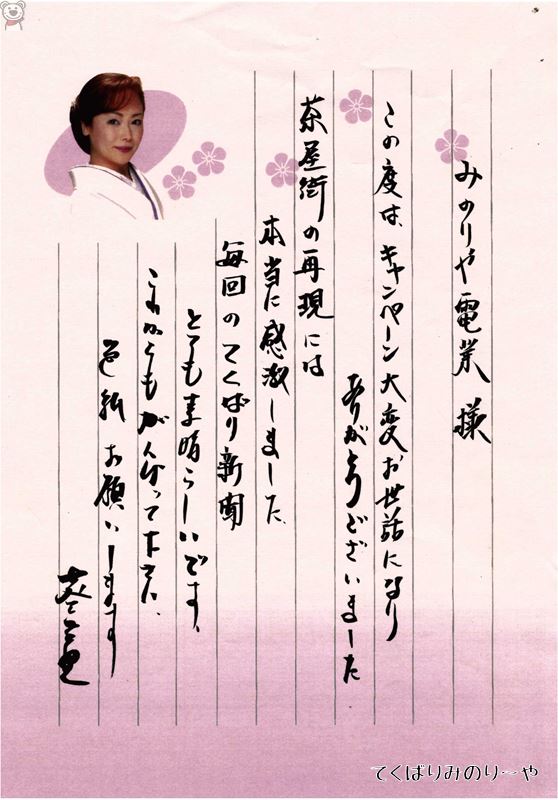 みのりや電業 様
この度は、キャンペーン大変お世話になり
ありがとうございました
茶屋街の再現には
本当に感激しました、
毎回のてくばり新聞
とても素晴らしいです、
これからもがんばって下さい、
色紙お願いします
てくばりみのり〜や